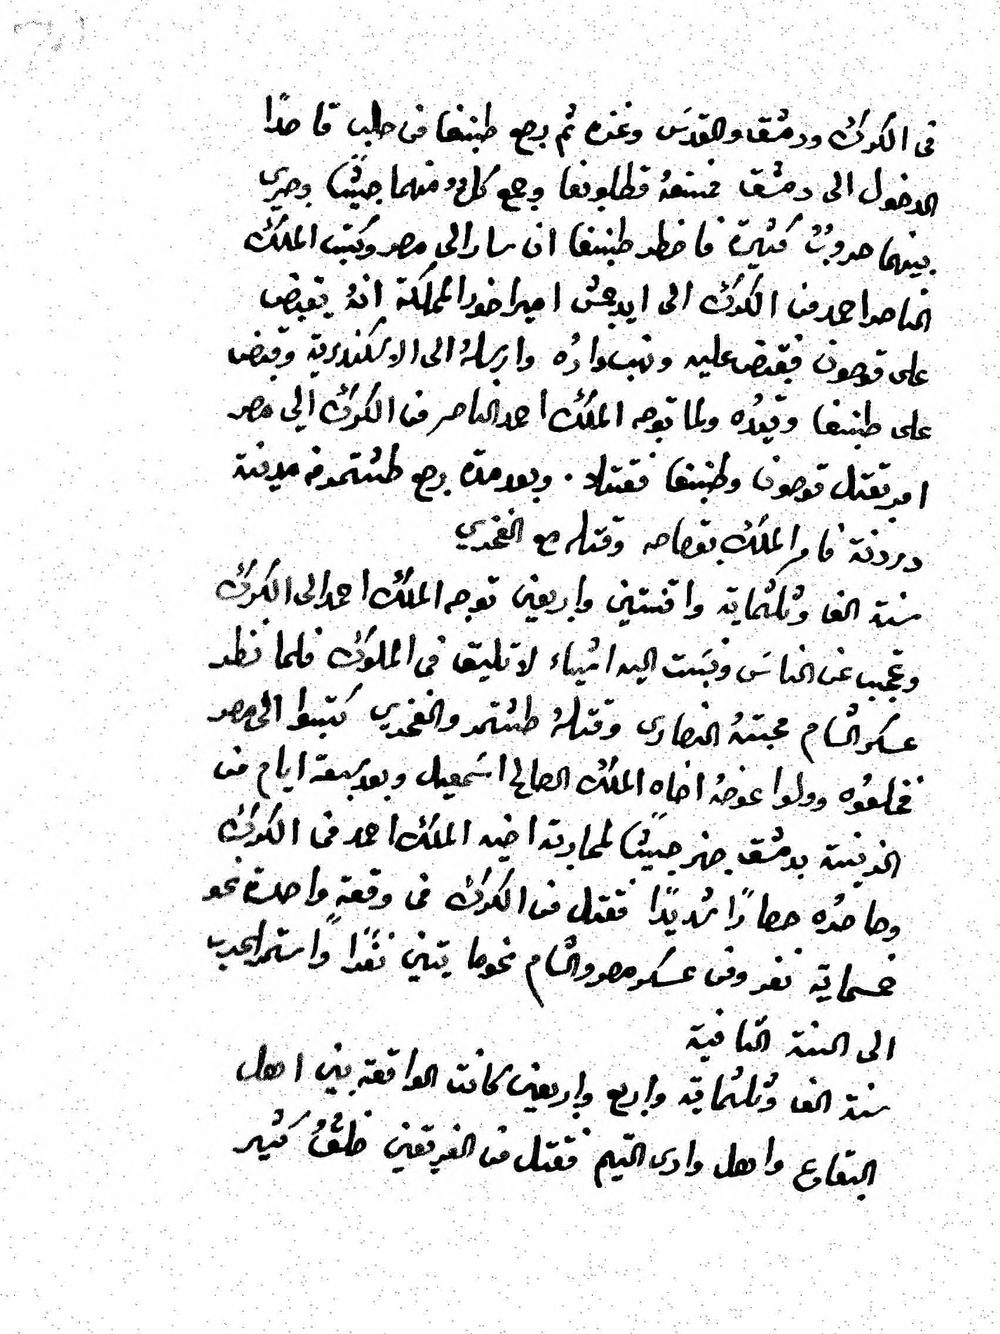 فى الكرك ودمشق والقدس وغزه ثم رجع طبنغا من حلب قاصدًا
الدخول الى دمشق فمنعهُ قطلوبغا وجمع كلٌ منهما جيشًا وجرى
بينهما حروبٌ كثيرة فاضطر طبنغا ان سار الى مصر وكتب الملك
الناصر احمد من الكرك الى ايدغمش اميراخور المملكة انهُ يقبض
على قوصون فقبض عليه ونهب دارُه وارسلهُ الى الاسكندرية وقبض
على طبنغا وقيدُه ولما توجه الملك احمد الناصر من الكرك الى مصر
امر بقتل قوصون وطبنغا فقتلا . وبعد مدة رجع طشتمر من مدينة
دردنة فامر الملك بقصاصه وقتله مع الفخري
سنة الف وثلثماية واثنتين واربعين توجه الملك احمد الى الكرك
وتحجب عن الناس ونسبت اليه اشياء لا تليق فى الملوك فلما نظر
عسكر الشام محبتهُ النصارى وقتلهُ طشتمر والفخري كتبوا الى مصر
فخلعوُه وولوا عوضهُ اخاه الملك الصالح اسمعيل وبعد سبعة ايام من
الزينة بدمشق جهز جيشًا لمحاربة اخيه الملك احمد فى الكرك
وحاصرُه حصارًا شديدًا فقتل من الكرك فى وقعةٍ واحدة نحو
خمسماية نفر ومن عسكر مصر والشام نحو مايتين نفرًا واستمر الحرب
الى السنة الثانية
سنة الف وثلثماية واربع واربعين كانت الواقعة بين اهل
البقاع واهل وادى التيم فقتل من الفريقين خلقٌ كثير